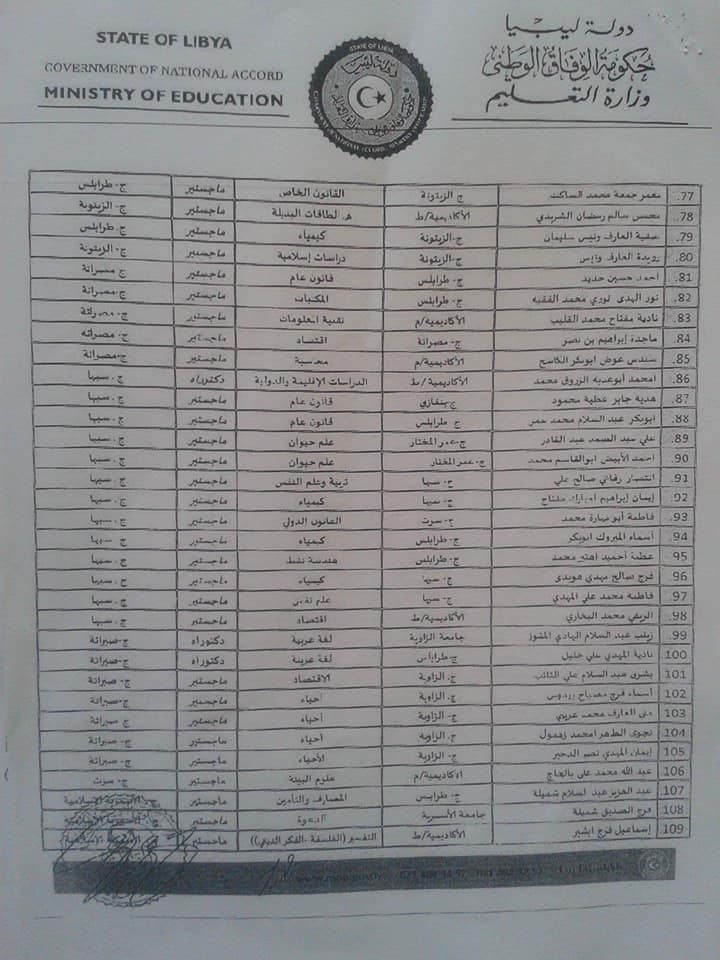 STATE OF LIBYA
GOVERNMENT OF NATIONAL ACCORD
MINISTRY OF EDUCATION
دولة ليبيا
حكومة الوفاق الوطني
وزارة التعليم
77. معمر جمعة محمد الساكت ج الزيتونة القانون الخاص ماجستير ج- طرابلس
78. محسن سالم رمضان الشريدي الأكاديمية/ط هـ. لطاقات البديلة ماجستير ج- الزيتونة
79. صفية العارف ونيس سليمان ج-الزيتونة كيمياء ماجستير ج- طرابلس
80. رويدة العارف ونيس ج-الزيتونة دراسات إسلامية ماجستير ج- الزيتونة
81. احمد حسين حديد ج- طرابلس قانون عام ماجستير ج مصراتة
82. نور الهدى نوري محمد الفقيه ج- طرابلس المكتبات ماجستير ج- مصراتة
83. نادية مفتاح محمد القليب الأكاديمية/م تقنية المعلومات ماجستير ج- مصراتة
84. ماجدة إبراهيم بن نصر ج- مصراتة اقتصاد ماجستير ج- مصراته
85. سندس عوض ابوبكر الكاسح الأكاديمية/م محسبة ماجستير ج-مصراتة
86. امحمد أبوعدبه الزروق محمد الأكاديمية/ط الدراسات الإقليمة والدولية دكتوراه ج . سبها
87. هدية جابر عطية محمود ج بنغازي قانون عام ماجستير ج . سبها
88. ابوبكر عبد السلام محمد عمر ج طرابلس قانون عام ماجستير ج . سبها
89. علي عبد الصمد عبد القادر ج-عمر المختار علم حيوان ماجستير ج . سبها
90. احمد الأبيض ابوالقاسم محمد ج- عمر المختار علم حيوان ماجستير ج . سبها
91. انتصار رفاتي صالح علي ج- سبها تربية وعلم النفس ماجستير ج . سبها
92. إيمان إبراهيم امبارك مفتاح ج- سبها كيمياء ماجستير ج . سبها
93. فاطمة أبو صبارة محمد ج- سرت القانون الدولي ماجستير ج . سبها
94. أسماء المبروك ابوبكر ج- طرابلس كيمياء ماجستير ج . سبها
95. عطية أحميد اهتير محمد ج- طرابلس هندسة نفط ماجستير ج . سبها
96. فرج صالح مهدي هويدي ج- سبها كيمياء ماجستير ج . سبها
97. فاطمة محمد علي المهدي ج- سبها علم نفس ماجستير ج . سبها
98. الريفي محمد البخاري الأكاديمية/ط اقتصاد ماجستير ج . سبها
99. زينب عبد السلام الهادي المشوز جامعة الزاوية لغة عربية دكتوراه ج-صبراتة
100. نادية المهدي علي خليل ج-طرابلس لغة عربية دكتوراه ج-صبراتة
101. بشرى عبد السلام علي التائب ج. الزاوية الاقتصاد ماجستير ج- صبراتة
102. أسماء فرج مصباح بردوس ج. الزاوية أحياء ماجستير ج- صبراتة
103. منى العارف محمد عريبي ج. الزاوية أحياء ماجستير ج- صبراتة
104. نجوى الطاهر امحمد زهمول ج. الزاوية أحياء ماجستير ج- صبراتة
105. إيمان المهدي نصر الدحير ج- الزاوية الأحياء ماجستير ج- صبراتة
106. عبد الله محمد علي بالحاج الاكاديمية/م علوم البيئة ماجستير ج- سرت
107. عبد العزيز عبد السلام شميلة ج- طرابلس المصارف والتأمين ماجستير الاسمرية الإسلامية
108. فرج الصديق شميلة جامعة الأسمرية الدعوة ماجستير الإسلامية
109. إسماعيل فرج ابشير الأكاديمية/ط التفسير ((الفلسفة -الفكر الديني)) ماجستير الإسلامية